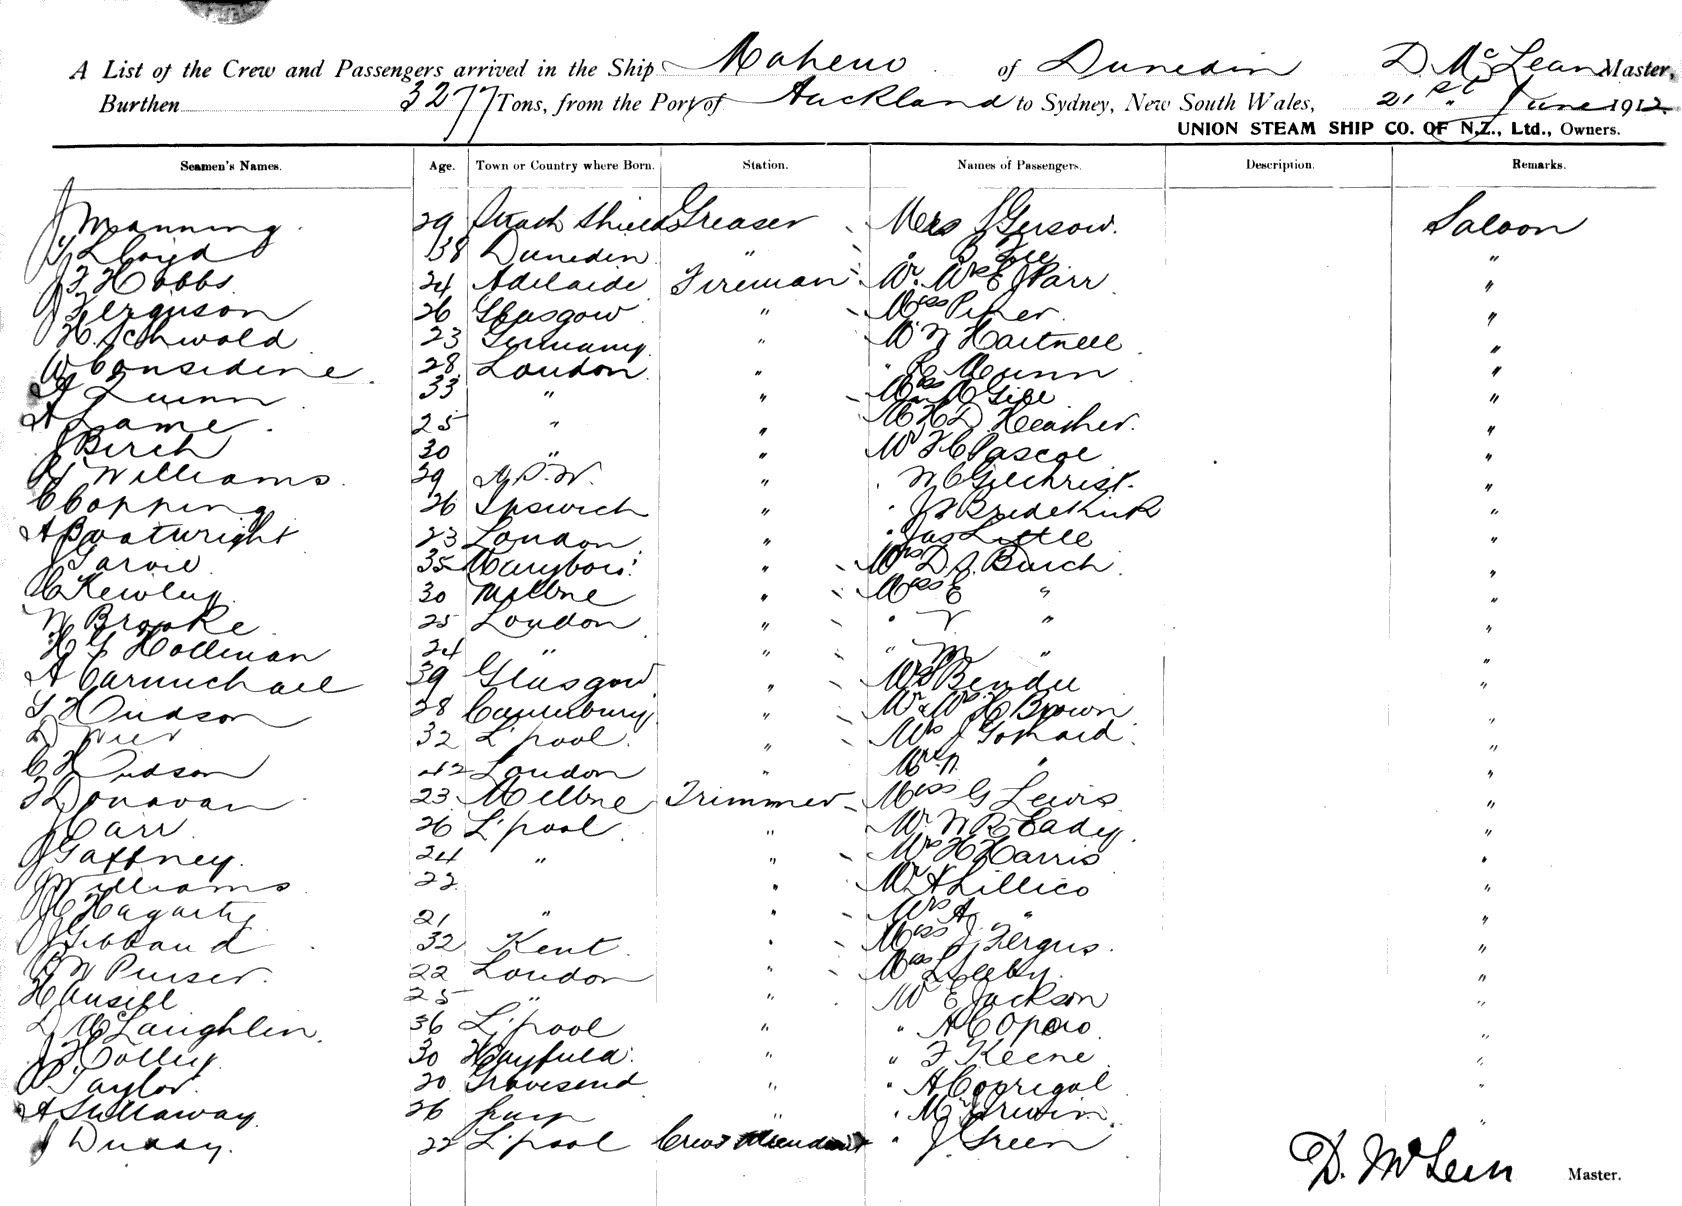 A List of the Crew and Passengers arrived in the Ship Maheno of Dunedin D. McLean Master,
Burthen 3277 Tons, from the Port of Auckland to Sydney, New South Wales, 21st June 1912
UNION STEAM SHIP CO. OF N.Z., Ltd., Owners.
Seamen's Names. Age. Town or Country where Born. Station. Names of Passengers. Description. Remarks.
J Manning 29 Shields Greaser Saloon
Lloyd 38 Dunedin " "
J F Hobbs 24 Adelaide Fireman Mr. Mrs E J Parr "
J Ferguson 26 Glasgow " Miss Piper "
H. Schwold 23 Germany " Mr W Hartnell "
W Considine 28 London " " Munn "
Quinn 33 " " "
A Lame 25 " " Heather "
J Birch 30 " " Mr F C Pascoe "
Williams 29 N.S.W. " " W C Gilchrist "
C Copping 26 Ipswich " " "
A Boatwright 23 London " " Jas Little "
J Jarvie 35 Maryboro' " Mrs D J. Burch "
C Kewley 30 Melbne " Miss E " "
W Brooke 25 London " " V " "
H G Hollman 24 " " " M " "
A Carmichael 39 Glasgow " "
Hudson 28 Canterbury " Mr & Mrs H Brown "
D 32 L'pool " Mrs J "
C H Hudson 42 London " "
Donavan 23 Melbne Trimmer Miss G Lewis "
J Carr 26 L'pool " Mr W R Eady "
J Gaffney 24 " " Mrs H Harris "
J Williams 22 " Mr A Lillico "
J C Hagarty 21 " " Mrs A " "
J Gibbaud 32 Kent " Miss J Fergus "
W Purser 22 London " Miss "
H Ansill 25 " " Mr E Jackson "
D McLaughlin 36 L'pool " " "
J Holley 30 Hayfield " " F Keene "
P Taylor 20 Gravesend " " "
A Sullaway 26 " " Irwin "
J Duxay 22 L'pool Crews Attendant " J Green
D. McLean Master.